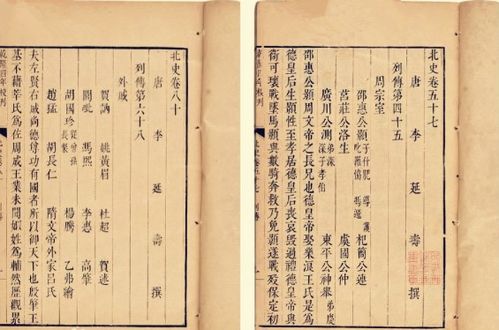 北史卷五十七
唐 李延壽 撰
列傳第四十五
周宗室
邵惠公顥 子什肥 導 護 叱羅協 馮遷 杞簡公連
莒莊公洛生 虞國公仲
廣川公測 弟深 深子孝伯 東平公神舉 弟慶
邵惠公顥周文帝之長兄也德皇帝娶樂浪王氏是爲
德皇后生顥性至孝居德皇后喪哀毀過禮德皇帝與
衛可瓌戰墜馬顥與數騎奔救乃免顥遂戰歿保定初
北史卷八十
唐 李延壽 撰
列傳第六十八
外戚
賀訥 姚黃眉 杜超 賀迷
閭毗 馮熙 李惠 高肇
胡國珍 楊騰 乙弗繪
趙猛 胡長仁 隋文帝外家呂氏
夫左賢右戚尚德尊功有國者所以御天下也殷肇王
基不藉莘氏爲佐周成王業未聞姒姓爲輔然歷觀累
乾隆四年校刊